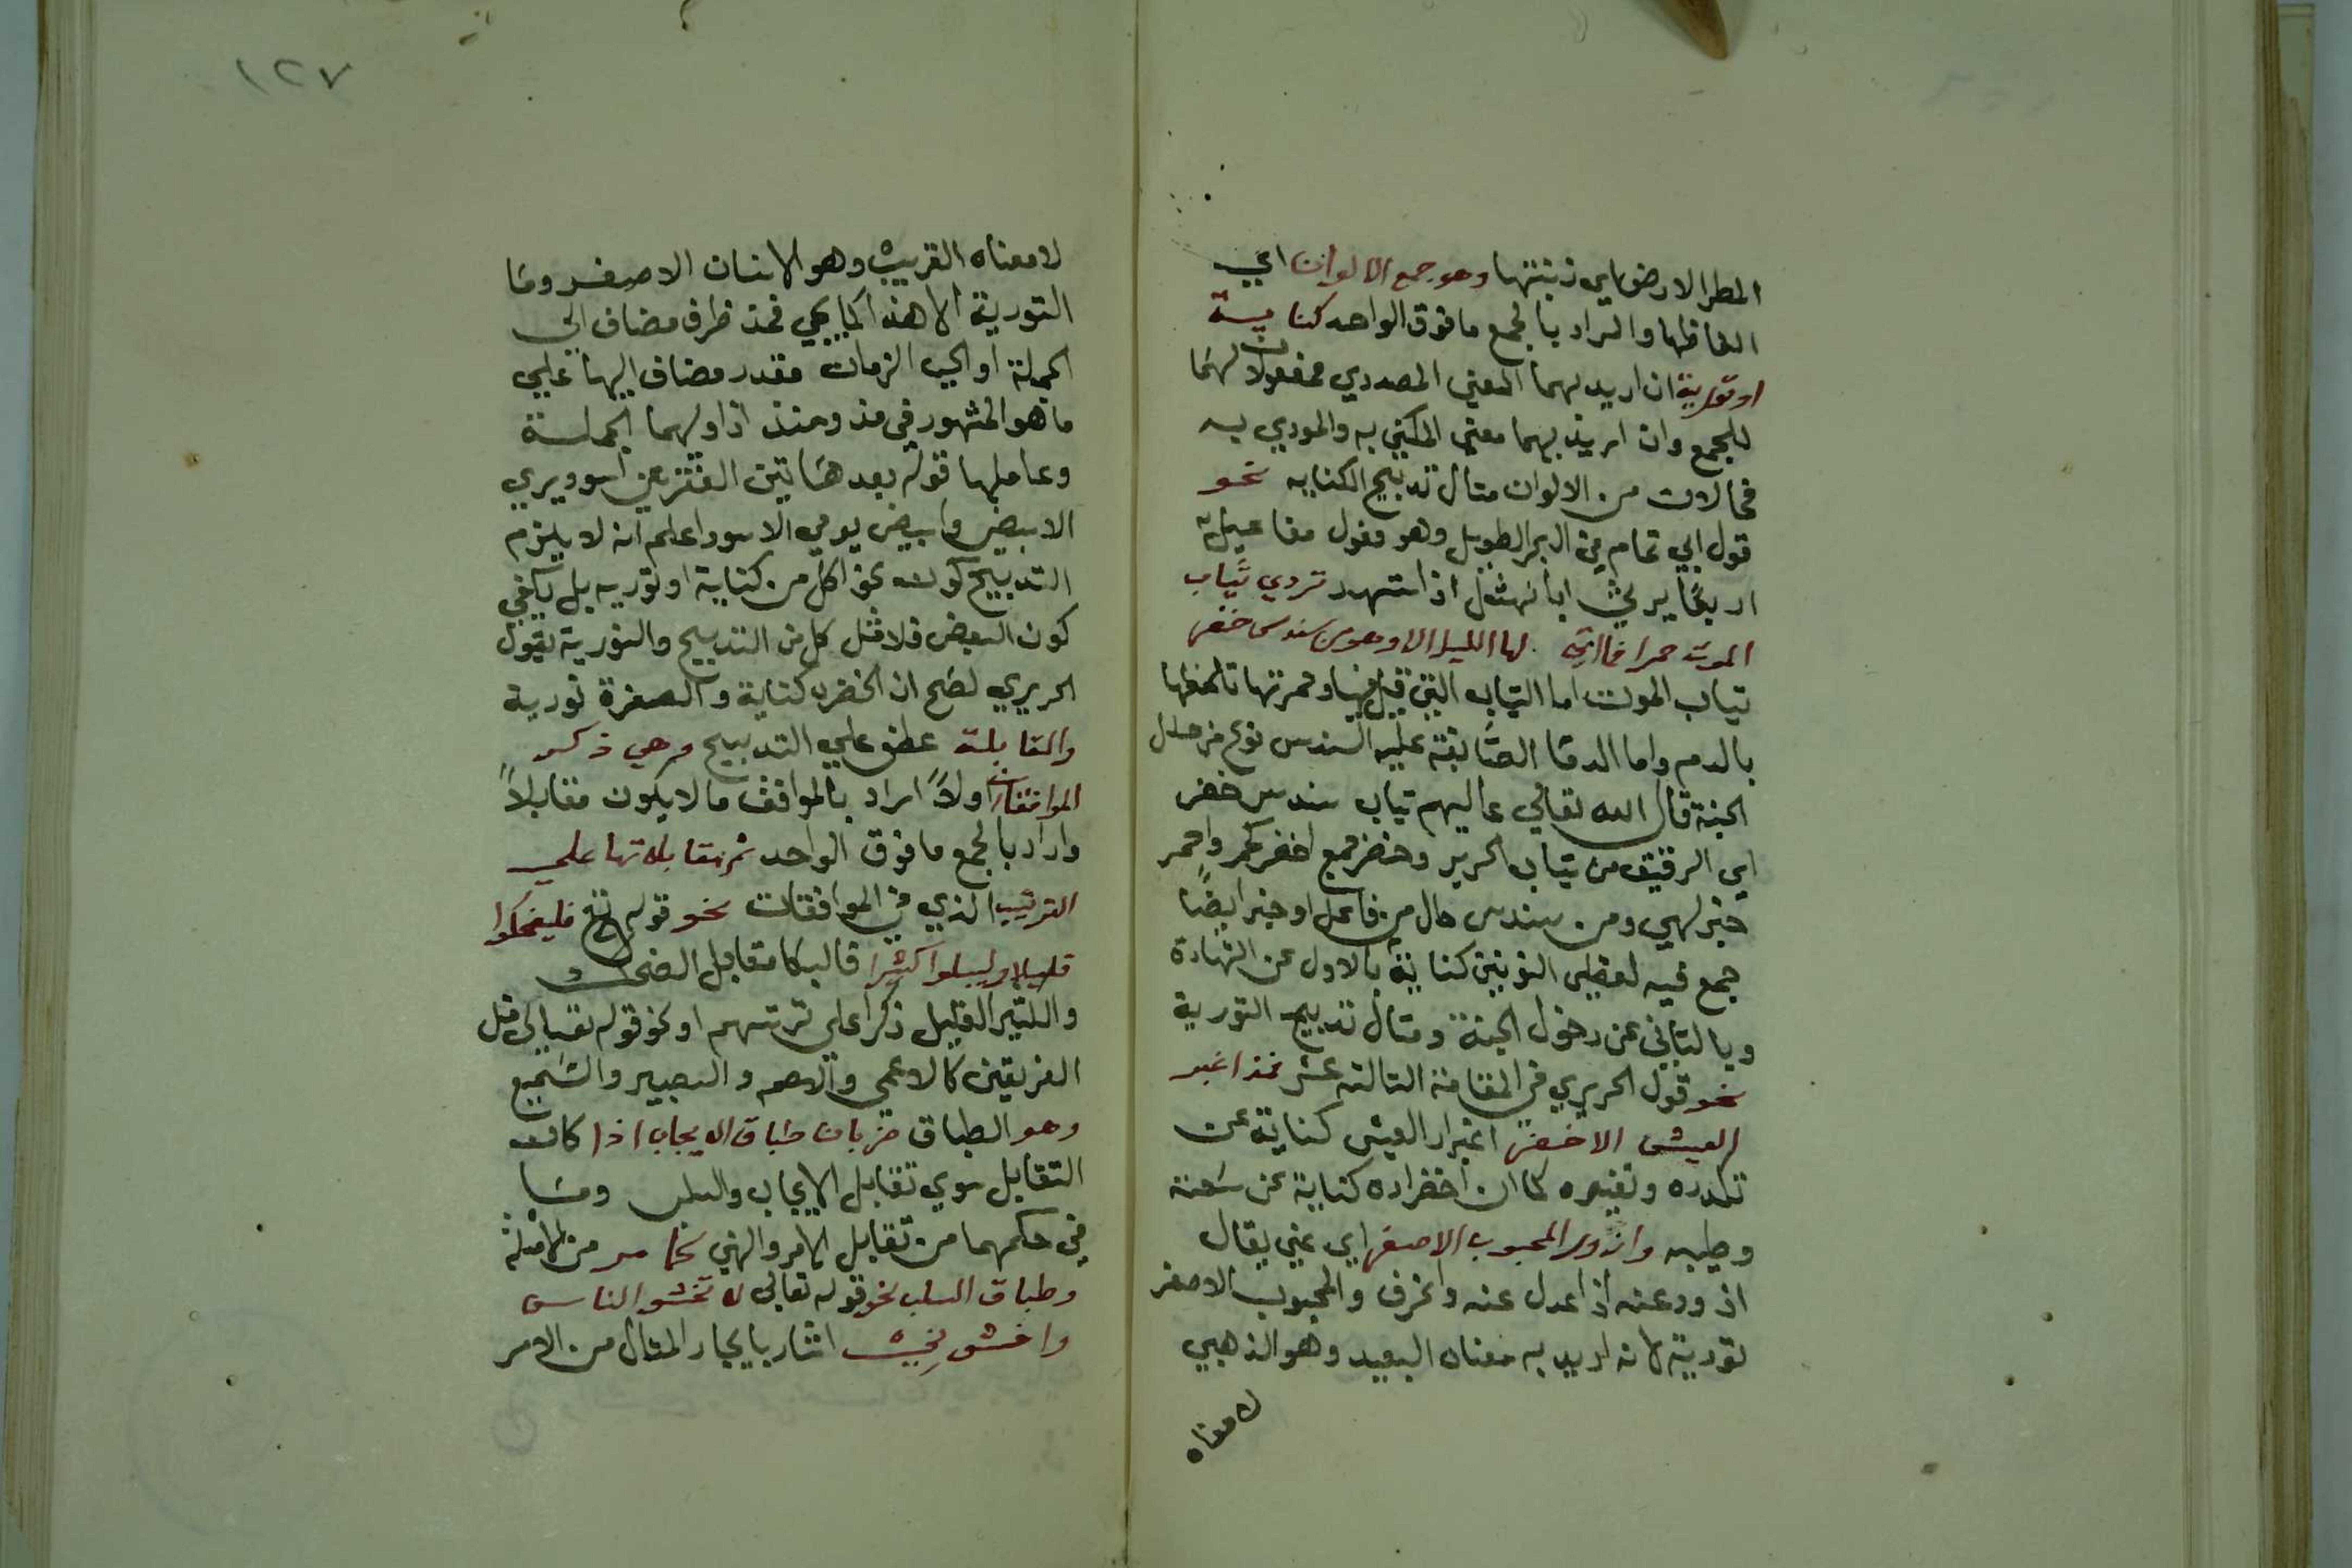 المطر الارض اي زينتها وهو جمع الالوان اي
الفاظها والمراد بالجمع ما فوق الواحد كناية
او تورية ان اريد بهما المعني المصدري فمفعولان لهما
للجمع وان اريد بهما معني المكني به والموري به
فحالان من الالوان مثال تدبيج الكنايه نحو
قول ابي تمام من البحر الطويل وهو فعول مفاعيلن
اربعا يرثي ابا نهشل اذ استشهد تردي ثياب
الموت حمرا فما اتي لها الليل الا وهي من سندس خضر
ثياب الموت اما الثياب التي قتل فيها وحمرتها تلطخها
بالدم واما الدما السندس نوع من حلل
الجنة قال الله تعالي عاليهم ثياب سندس خضر
اي الرقيق من ثياب الحرير وخضر جمع اخضر كحمر واحمر
خبر لهي ومن سندس حال من فاعل او خبر ايضًا
جمع فيه لفظي اللونين كناية بالاول عن الشهادة
وبالثاني عن دخول الجنة ومثال تدبيج التورية
نحو قول الحريري في المقامة الثالثة عشر فمذ اغبر
العيش الاخضر اغبرار العيش كناية عن
تكدره وتغيره كما ان اخضراره كناية عن سعته
وطيبه وازور المحبوب الاصفر اي عني يقال
ازور عنه اذا عدل عنه وانحرف والمحبوب الاصفر
تورية لانه اريد به معناه البعيد وهو الذهبي
لا معناه
١٢٧
لا معناه القريب وهو الانسان الاصفر وما
التورية الا هذا كما يجي فمذ ظرف مضاف الي
الجملة او الي الزمان مقدر مضاف اليها علي
ما هو المشهور في مذ ومنذ اذا وليهما الجملة
وعاملها قوله بعد هاتين الفقرتين اسود يومي
الابيض وابيض يومي الاسود اعلم انه لا يلزم
التدبيج كون كل من كناية او توريه بل يكفي
كون البعض فلا مثل كل من التدبيج والتورية بقول
الحريري لصح ان الخضره كناية والصفرة تورية
والمقابلة عطف علي التدبيج وهي ذكر
الموافقات اولاً اراد بالموافق ما لا يكون مقابلاً
واراد بالجمع ما فوق الواحد ثم مقابلاتها علي
الترتيب الذي في الموافقات نحو قوله تع فليضحكوا
قليلا وليبكوا كثيرا فالبكا مقابل الضحك
والكثير القليل ذكرا علي ترتيبهم او نحو قوله تعالي مثل
الفريقين كالاعمي والاصم والبصير والسميع
وهو الطباق ضربان طباق الايجاب اذا كان
التقابل سوي تقابل الايجاب والسلب وما
في حكمهما من تقابل الامر والنهي كما مر من الامثلة
وطباق السلب نحو قوله تعالي لا تخشو الناس
واخشوني اشار بايجاز المثال من الامر